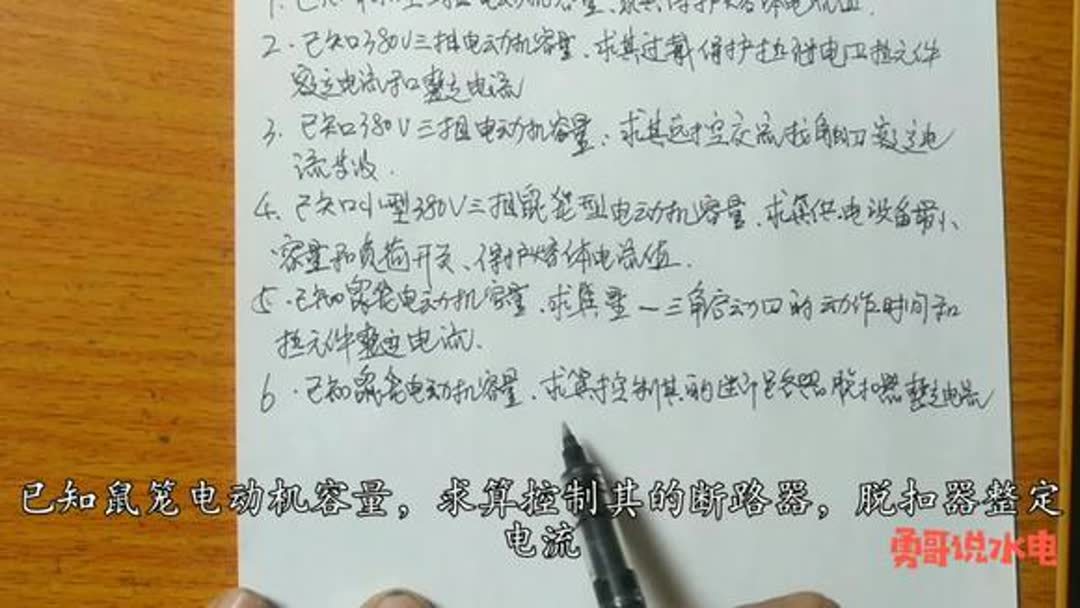 1. 已知 380V三相电动机容量、求其保护熔体电流值.
2. 已知380V三相电动机容量、求其过载保护热继电口热元件
额定电流和整定电流
3. 已知380V三相电动机容量、求其远控交流接触口额定电
流等级.
4. 已知小型380V三相鼠笼型电动机容量、求其供电设备最小
容量和负荷开关、保护熔体电流值.
5. 已知鼠笼电动机容量、求算星一三角启动口的动作时间和
热元件整定电流.
6. 已知鼠笼电动机容量、求算控制其的断路器脱扣器整定电流
已知鼠笼电动机容量，求算控制其的断路器，脱扣器整定
电流
勇哥说水电